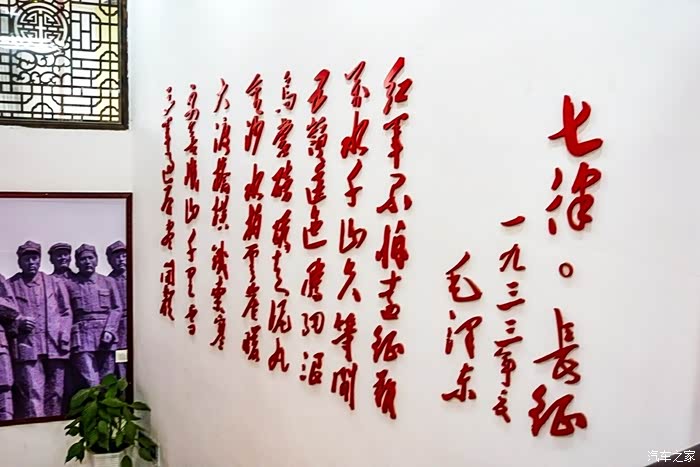 七律。長征
一九三三年
毛泽东
红军不怕远征难
万水千山只等閒
五嶺逶迤腾细浪
乌蒙磅礴走泥丸
金沙水拍云崖暖
大渡橋横铁索寒
更喜岷山千里雪
三军过后尽开颜
汽车之家